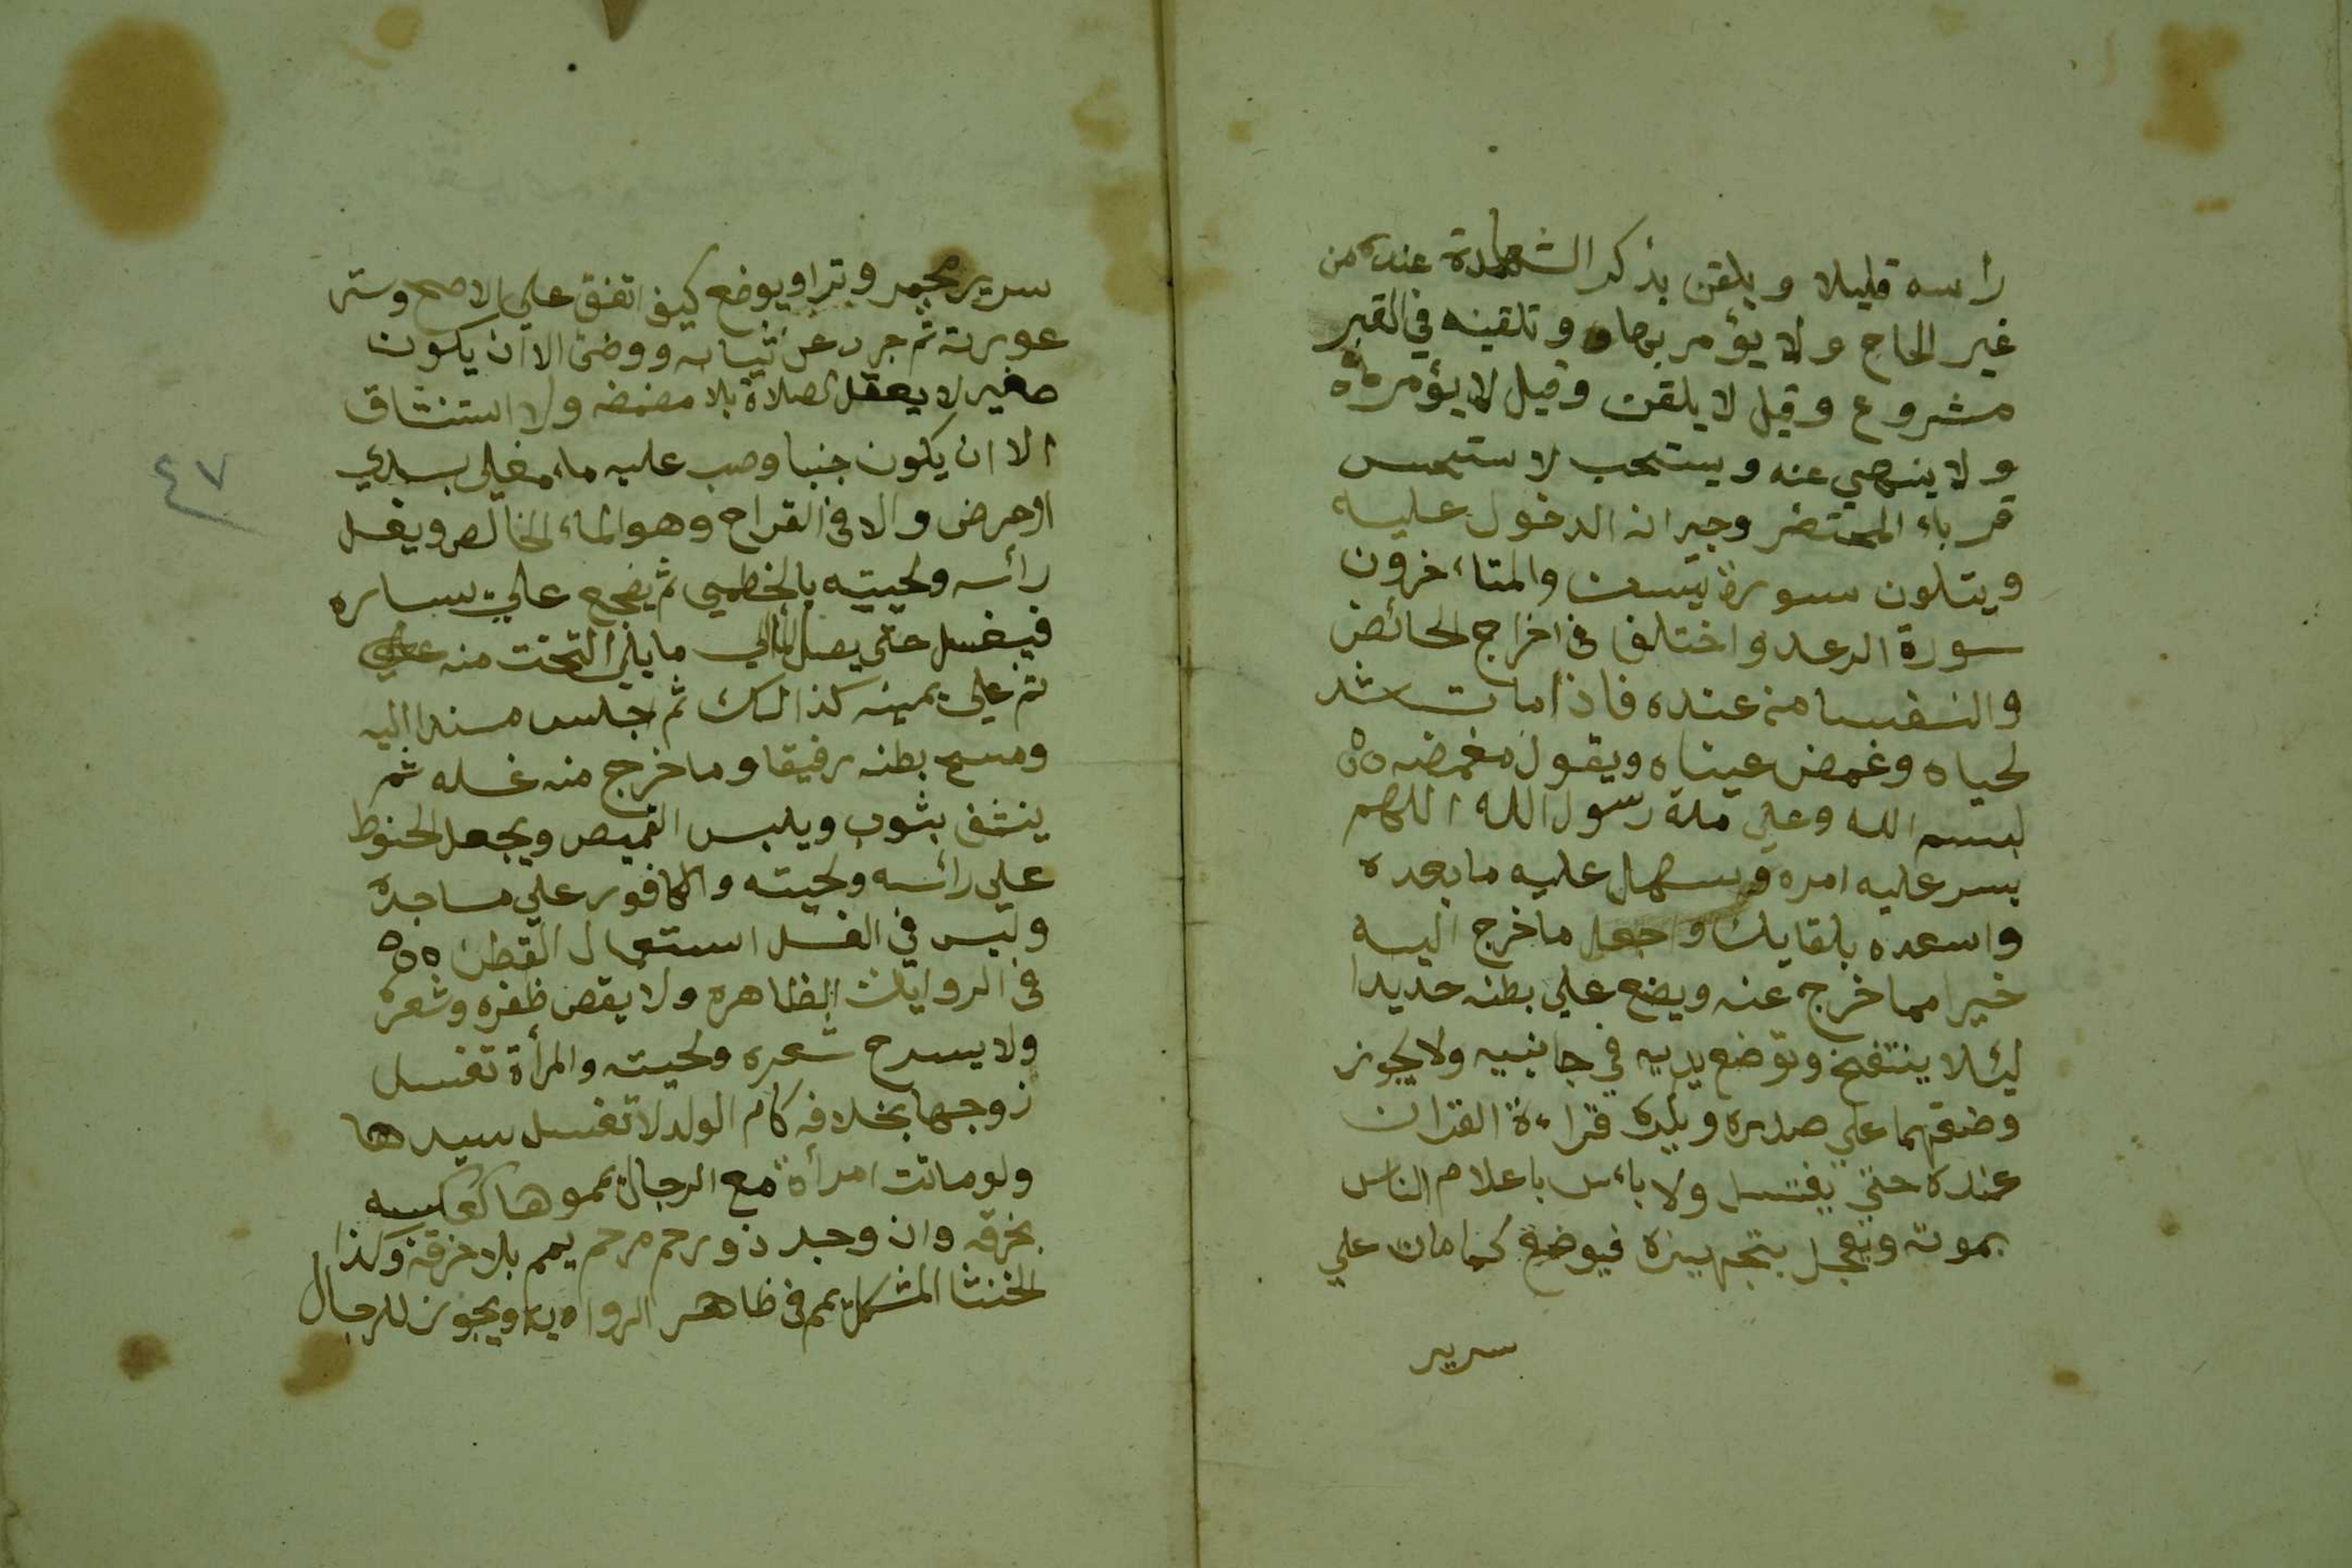 رأسه قليلا ويلقن بذكر الشهادة عنده من
غير الحاح ولا يؤمر بها و وتلقينه في القبر
مشروع وقيل لا يلقن وقيل لا يؤمر به
ولا ينهي عنه ويستحب لا ستحسن
قرباء المحتضر وجيرانه الدخول عليه
ويتلون سورة يسن والمتاءخرون
سورة الرعد واختلف في اخراج الحائض
والنفسا من عنده فاذا مات شد
لحياه وغمض عيناه ويقول مغمضه
بسم الله وعلي ملة رسول الله اللهم
يسر عليه امره وسهل عليه ما بعده
واسعده بلقايك واجعل ما خرج اليه
خيرا مما خرج عنه ويضع علي بطنه حديدا
ليئلا ينتفخ وتوضع يديه في جانبيه ولا يجوز
وضعهما علي صدره ويكره قراءة القران
عنده حتي يغتسل ولا باءس باعلام الناس
بموته ويعجل بتجهيزه فيوضع كما مات علي
سرير
سرير مجمر وترا ويوضع كيف اتفق علي الاصح وستر
عورته ثم جرد عن ثيابه ووضئ الا ان يكون
صغير لا يعقل الصلاة بلا مضمضه ولا استنشاق
الا ان يكون جنبا وصب عليه ماء مغلي بسدر
او حرض والا في القراح وهو الماء الخالص ويغسل
رأسه ولحيته بالخطمي ثم يضجع علي يساره
فيغسل حتي يصل الما الي ما يلي التخت منه
ثم علي يمينه كذالك ثم اجلس مسندا اليه
ومسح بطنه رفيقا وما خرج منه غسله ثم
ينشف بثوب ويلبس القميص ويجعل الحنوط
علي رأسه ولحيته والكافور علي مساجده
وليس في الغسل استعمال القطن
في الروايات الظاهره ولا يقص ظفره وشعره
ولا يسرح شعره ولحيته والمرأة تغسل
زوجها بخلافه كام الولد لا تغسل سيدها
ولو ماتت امرأة مع الرجال يمموها كعكسه
بخرقه وان وجد ذو رحم مرحم يمم بلا خرقة وكذا
الخنثا المشكل يمم في ظاهر الروايه ويجوز للرجال
٤٧